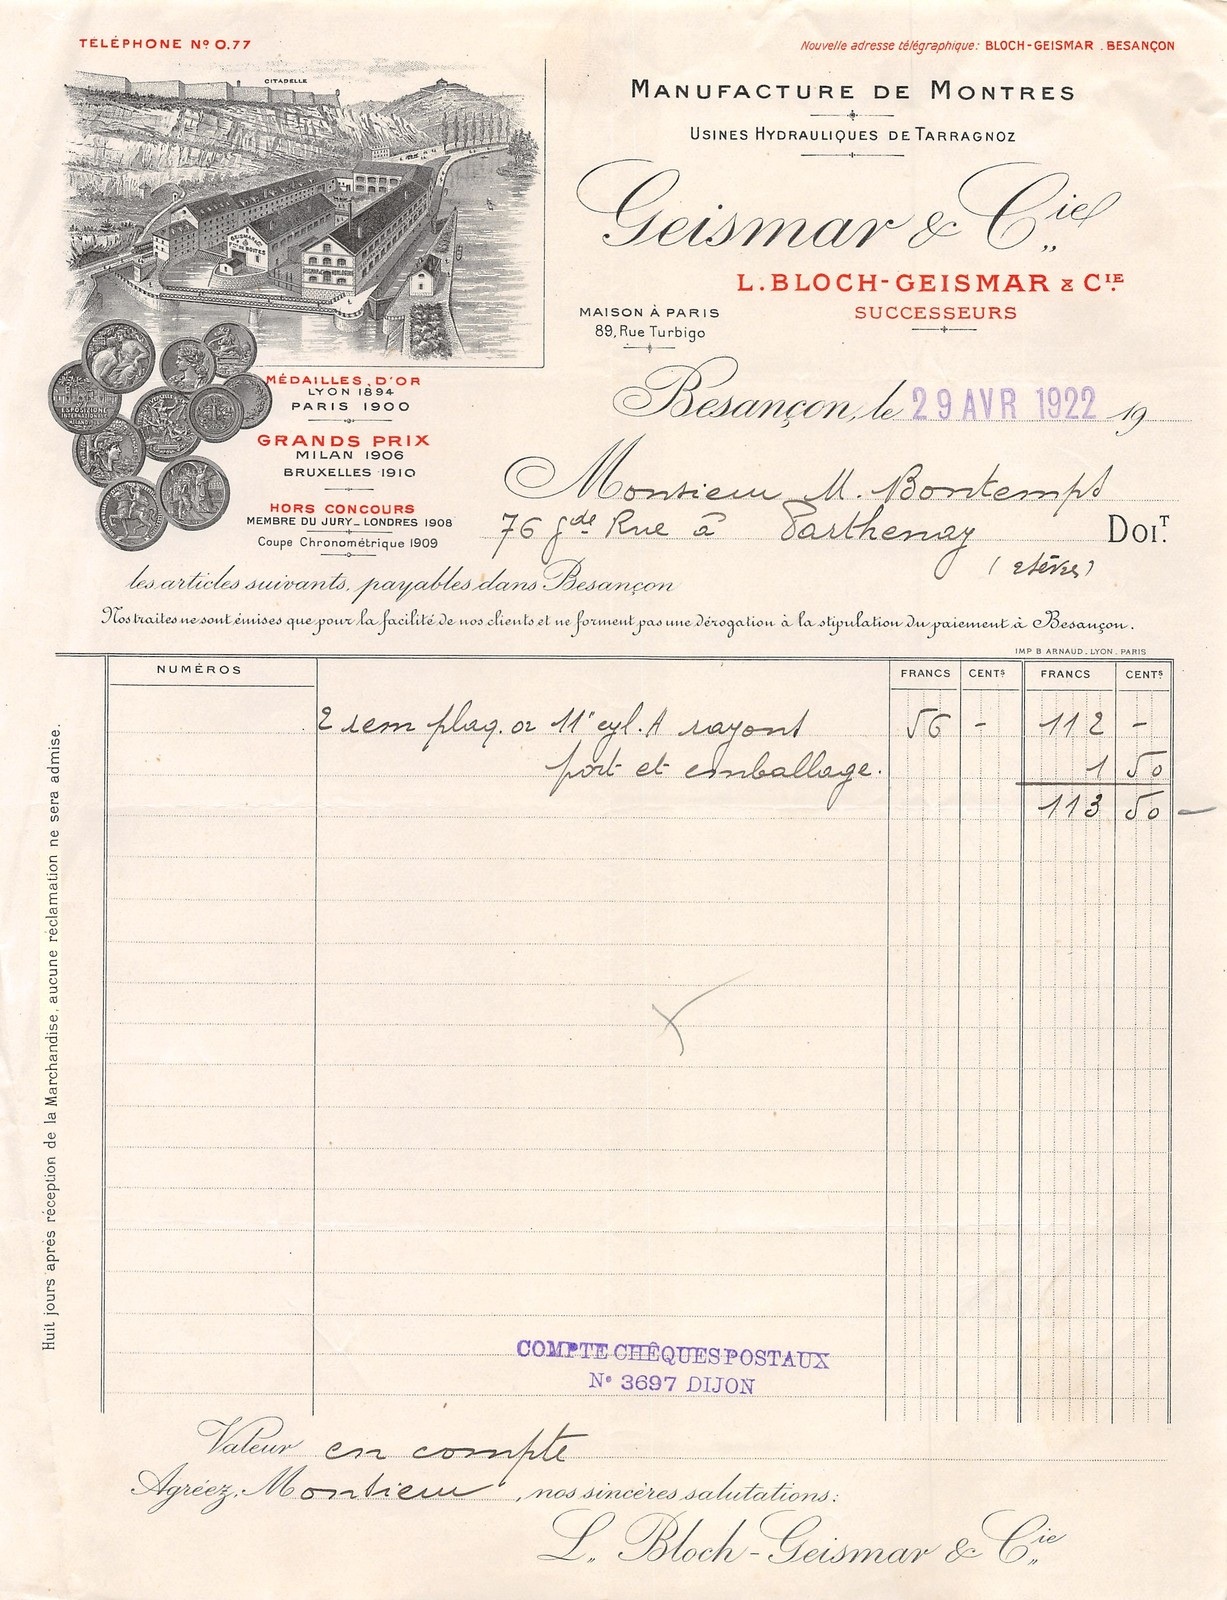 TÉLÉPHONE Nº 0.77
Nouvelle adresse télégraphique: BLOCH-GEISMAR . BESANÇON
CITADELLE
MANUFACTURE DE MONTRES
USINES HYDRAULIQUES DE TARRAGNOZ
Geismar & Cie
L. BLOCH-GEISMAR & CIE
SUCCESSEURS
MAISON À PARIS
89, Rue Turbigo
MÉDAILLES D'OR
LYON 1894
PARIS 1900
GRANDS PRIX
MILAN 1906
BRUXELLES 1910
HORS CONCOURS
MEMBRE DU JURY_LONDRES 1908
Coupe Chronométrique 1909
ESPOSIZIONE
INTERNAZIONALE
Besançon, le 29 AVR 1922 19
Monsieur M. Bontemps
76 gde Rue à Parthenay DOIT.
(2 Sèvres)
les articles suivants, payables dans Besançon
Nos traites ne sont émises que pour la facilité de nos clients et ne forment pas une dérogation à la stipulation du paiement à Besançon.
IMP B ARNAUD. LYON. PARIS
NUMÉROS FRANCS CENTS FRANCS CENTS
2 rem plaq. or 11''' cyl. A rayons 56 - 112 -
port et emballage. 1 50
113 50
Huit jours après réception de la Marchandise, aucune réclamation ne sera admise.
COMPTE CHÊQUES POSTAUX
No 3697 DIJON
Valeur en compte
Agréez, Monsieur, nos sincères salutations:
L. Bloch-Geismar & Cie